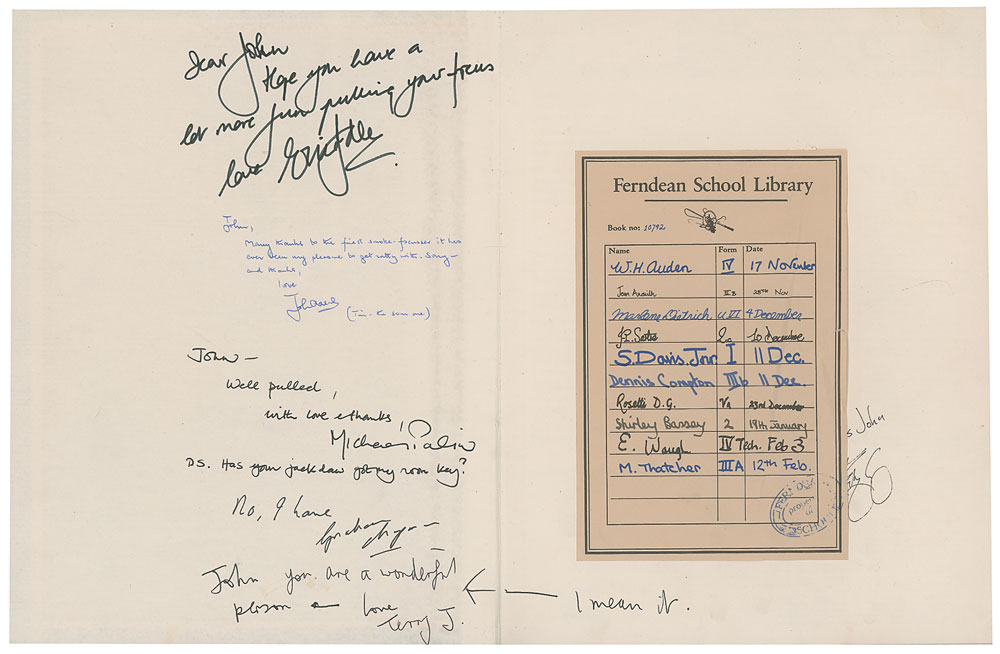 Dear John
Hope you have a
lot more fun pulling your focus
love Eric Idle.
John,
Many thanks to the first smoke-focusser it has
ever been my pleasure to get ratty with. Sorry –
and thanks,
love
John Cleese
(Tim - the same one)
John –
Well pulled,
with love & thanks,
Michael Palin
P.S. Has your jackdaw got my room key?
No, I have
Graham Chapman
John you are a wonderful
person – love
Terry J.
I mean it.
Ferndean School Library
Book no: 10792
Name Form Date
W.H. Auden IV 17 November
IIB 28th Nov
Marlene Dietrich U VI 4 December
J.P. Sartre 10 December
S. Davis. Jnr. I 11 Dec.
Dennis Compton IIIb 11 Dec.
Rosetti D.G. VA 23rd December
Shirley Bassey 2 19th January
E. Waugh IV Tech. Feb 3
M. Thatcher IIIA 12th Feb.
s John